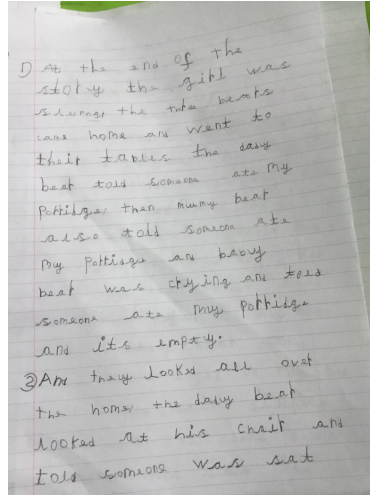 1) At the end of the
story the girl was
sleeping, the three bears
came home and went to
their tables the dady
bear told someone ate my
Porridge, then mumy bear
also told someone ate
my porridge and baby
bear was crying and told
someone ate my porridge
and its empty.
2) And they looked all over
the home, the dady bear
looked at his chair and
told someone was sat